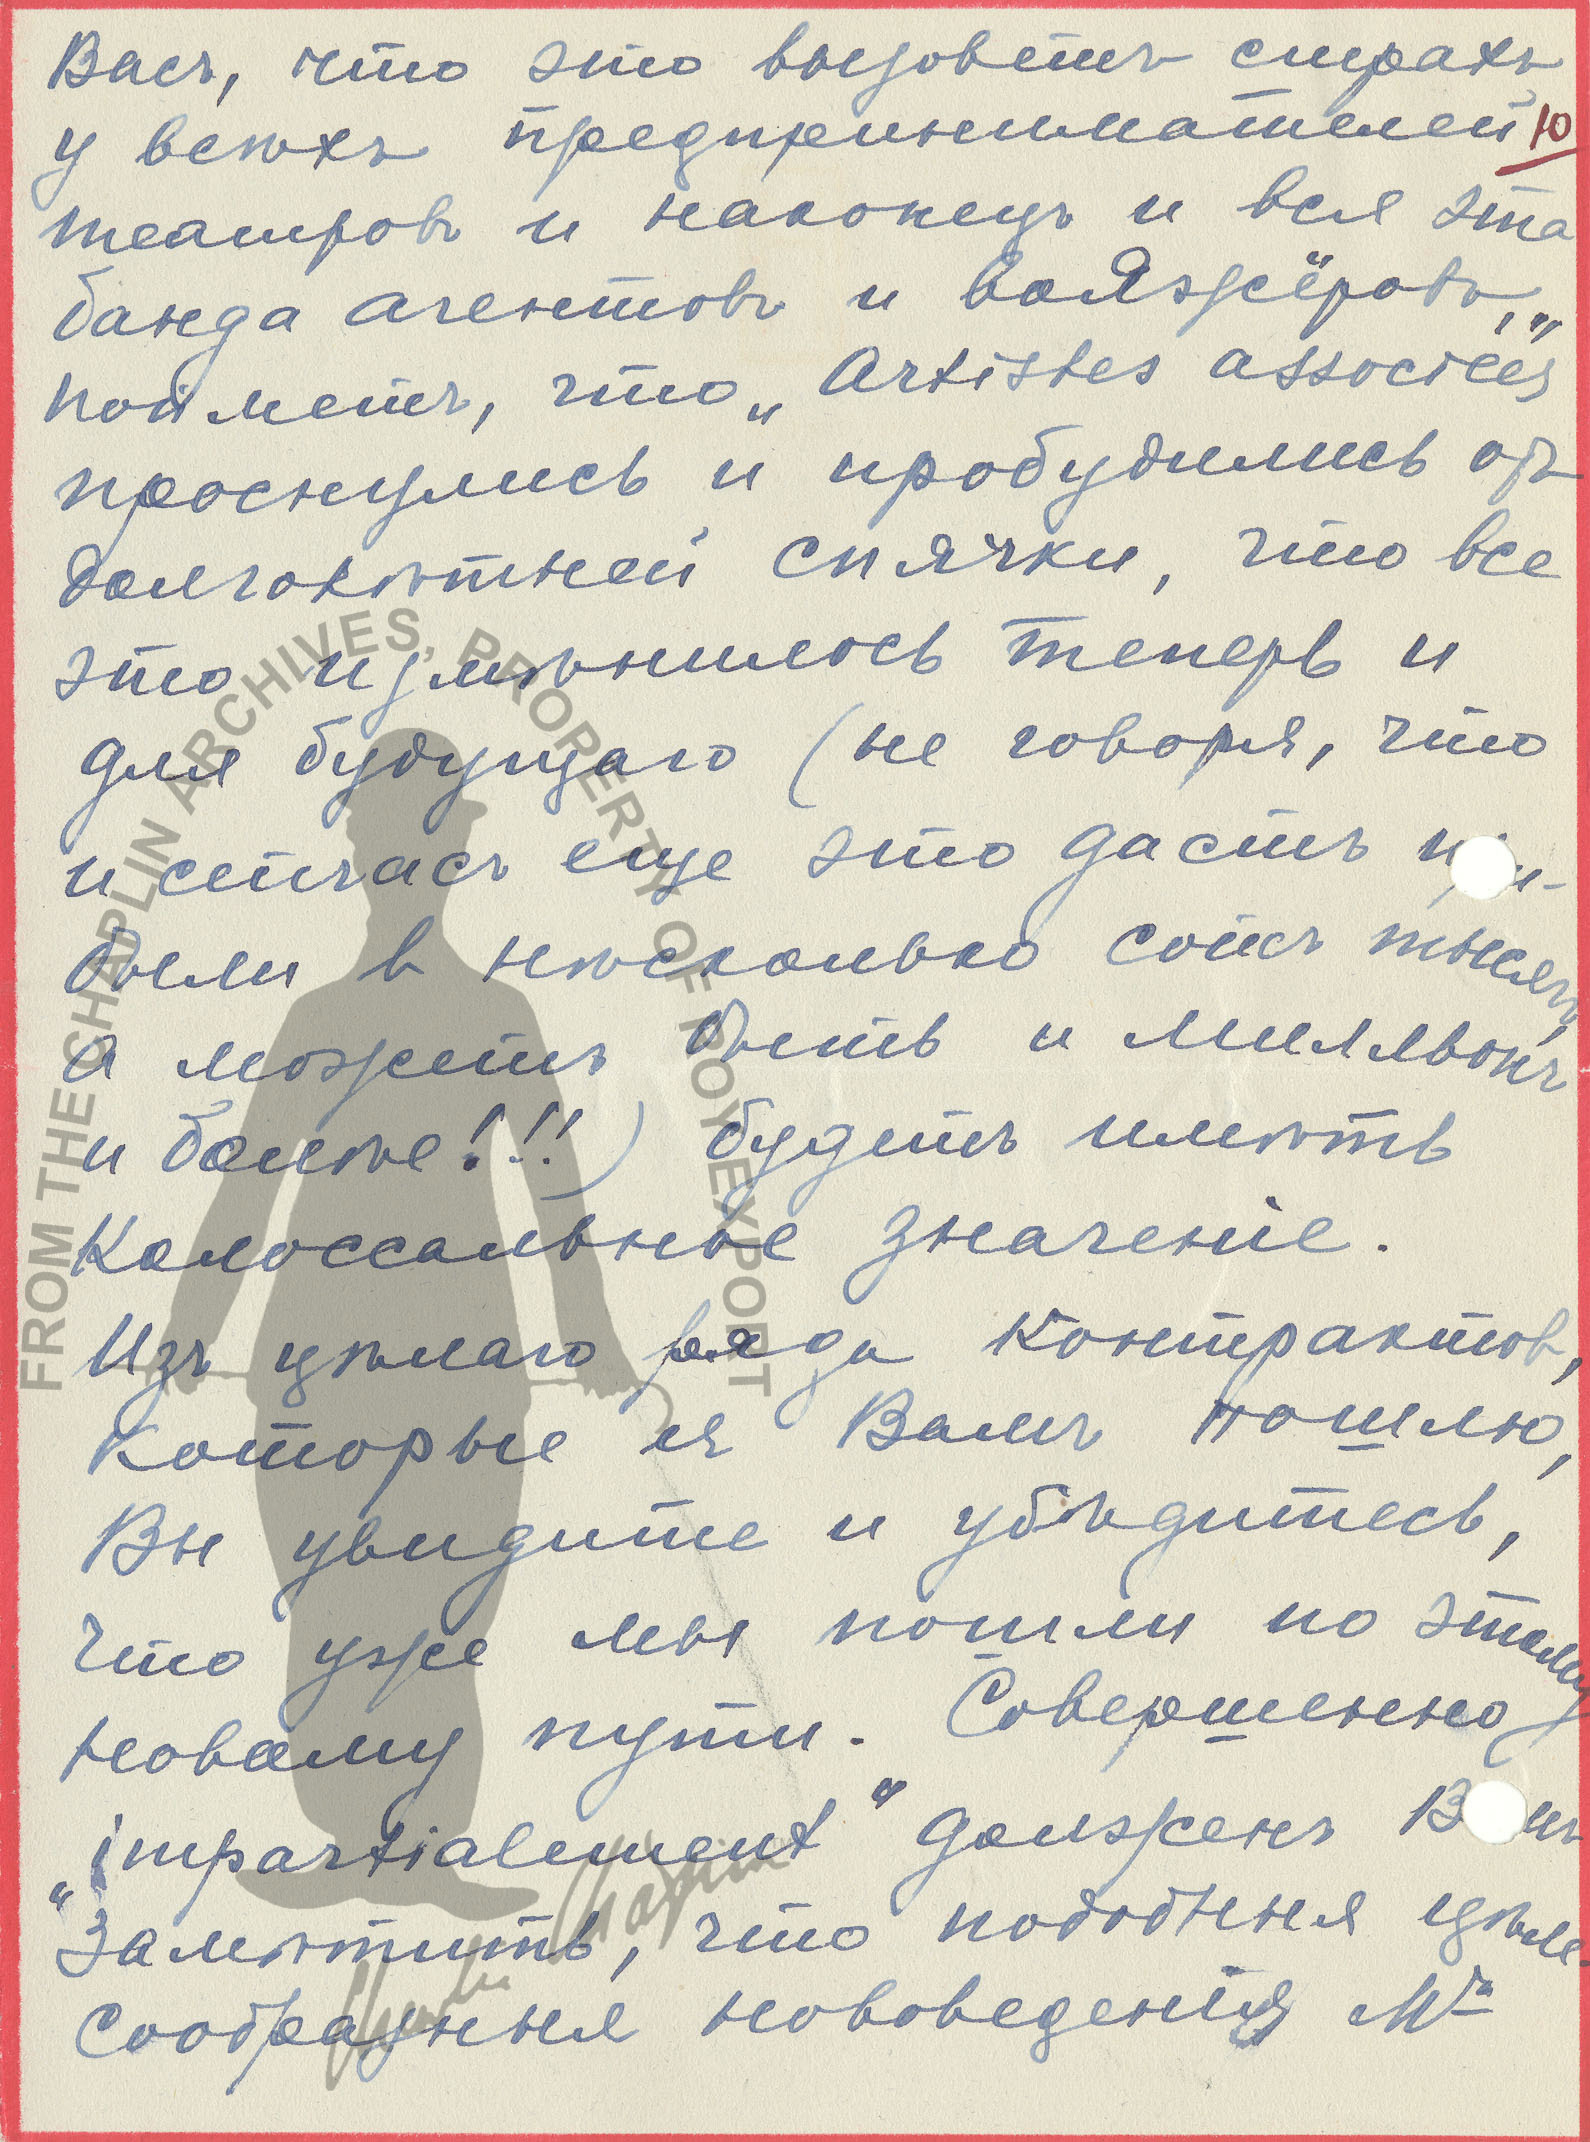 Васъ, что это вызоветъ страхъ
у всѣхъ предпринимателей 10
театровъ и наконецъ и вся эта
банда агентовъ и вояжёровъ,
поймётъ, что „Artistes associées"
проснулись и пробудились отъ
долголѣтней спячки, что все
это измѣнилось теперь и
для будущаго (не говоря, что
и сейчасъ еще это дастъ при-
были в нѣсколько сотъ тысячъ,
а можетъ быть и милльонъ
и болѣе!!!) будетъ имѣть
колоссальное значеніе.
Изъ цѣлаго ряда контрактов,
которые я Вамъ пошлю,
Вы увидите и убѣдитесь,
что уже мы пошли по этому
новому пути. Совершенно
„impartialement" долженъ Вамъ
замѣтить, что подобныя цѣле-
сообразныя нововеденія Mr
FROM THE CHAPLIN ARCHIVES, PROPERTY OF ROY EXPORT
Charlie Chaplin